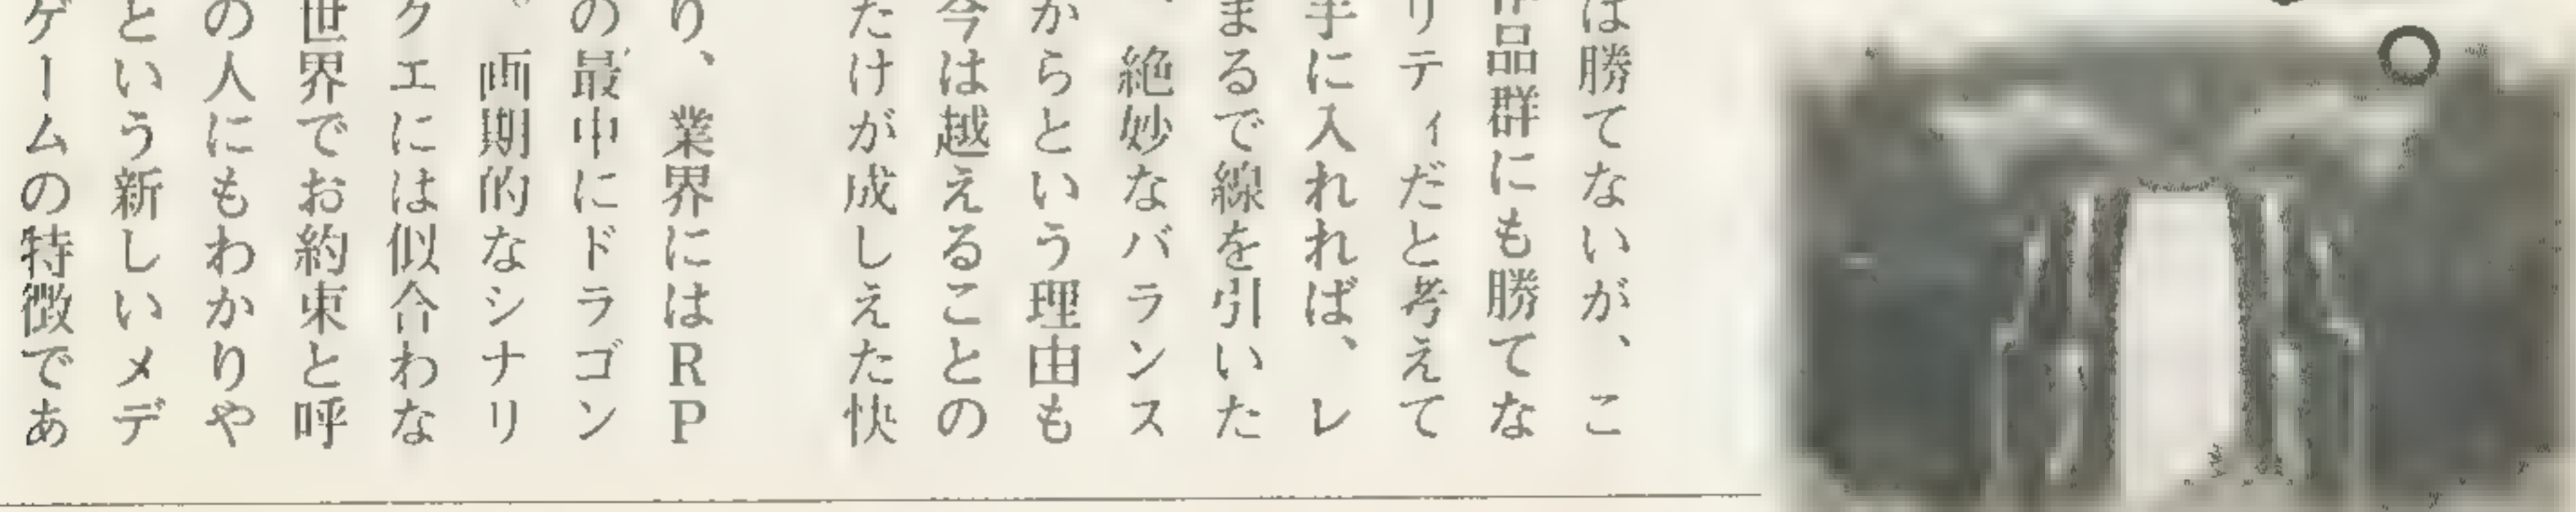 は勝てないが、こ
作品群にも勝てな
リティだと考えて
手に入れれば、レ
まるで線を引いた
、絶妙なバランス
からという理由も
今は越えることの
たけが成しえた快
り、業界にはRP
の最中にドラゴン
。画期的なシナリ
クエには似合わな
世界でお約束と呼
の人にもわかりや
という新しいメデ
ゲームの特徴であ